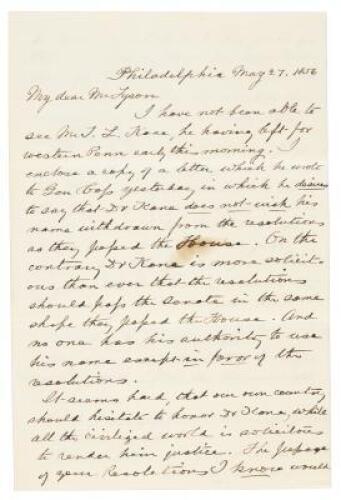 Philadelphia May 27. 1856
My dear Mr Tyson
I have not been able to
see Mr T. L. Kane, he having left for
western Penn early this morning. I
enclose a copy of a letter which he wrote
to Gen Cass yesterday in which he desires
to say that Dr Kane does not wish his
name withdrawn from the resolutions
as they passed the House. On the
contrary Dr Kane is more solicit-
ous than ever that the resolutions
should pass the Senate in the same
shape they passed the House. And
no one has his authority to use
his name except in favor of the
resolutions.
It seems hard, that our own country
should hesitate to honor Dr Kane, while
all the civilized world is solicitous
to render him justice. The passage
of your Resolutions I know would